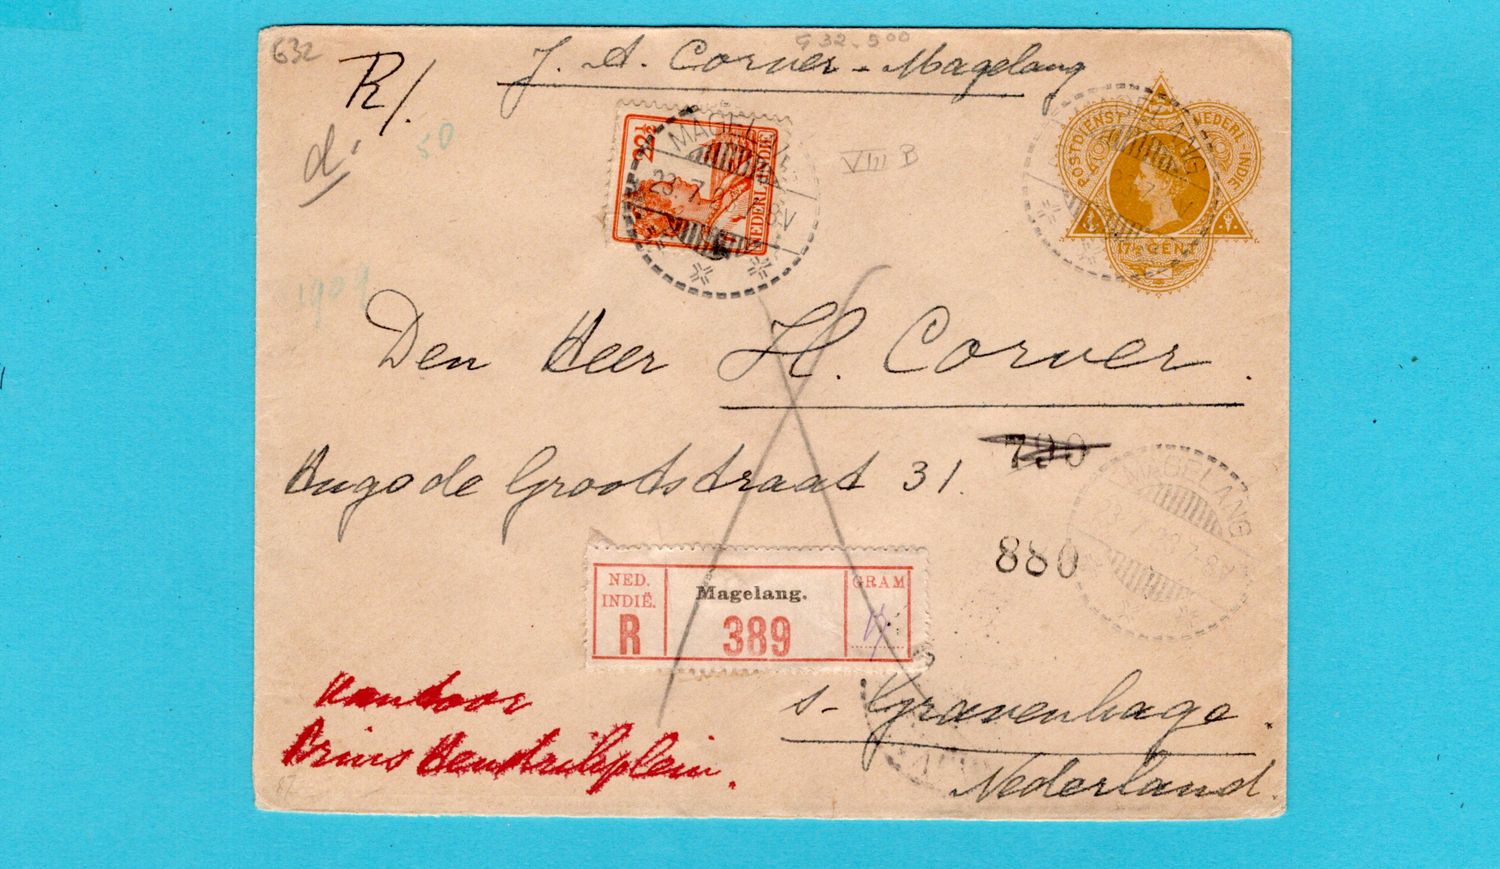 632
G32-500
R/.
J. A. Corver - Magelang
d.
50
22½
NEDERL. INDIË
MAGELANG
23.7.
8V
VIII B
POSTDIENST NEDERL-INDIË
17½ CENT
LANG
1909
Den Heer H. Corver.
Hugo de Grootstraat 31.
790
880
MAGELANG
23.7.20.7-8V
NED. INDIË.
R
Magelang.
389
GRAM
Kantoor
Prins Hendrikplein.
s-Gravenhage.
Nederland.